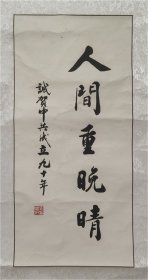 人間重晚晴
誠賀中共成立九十年